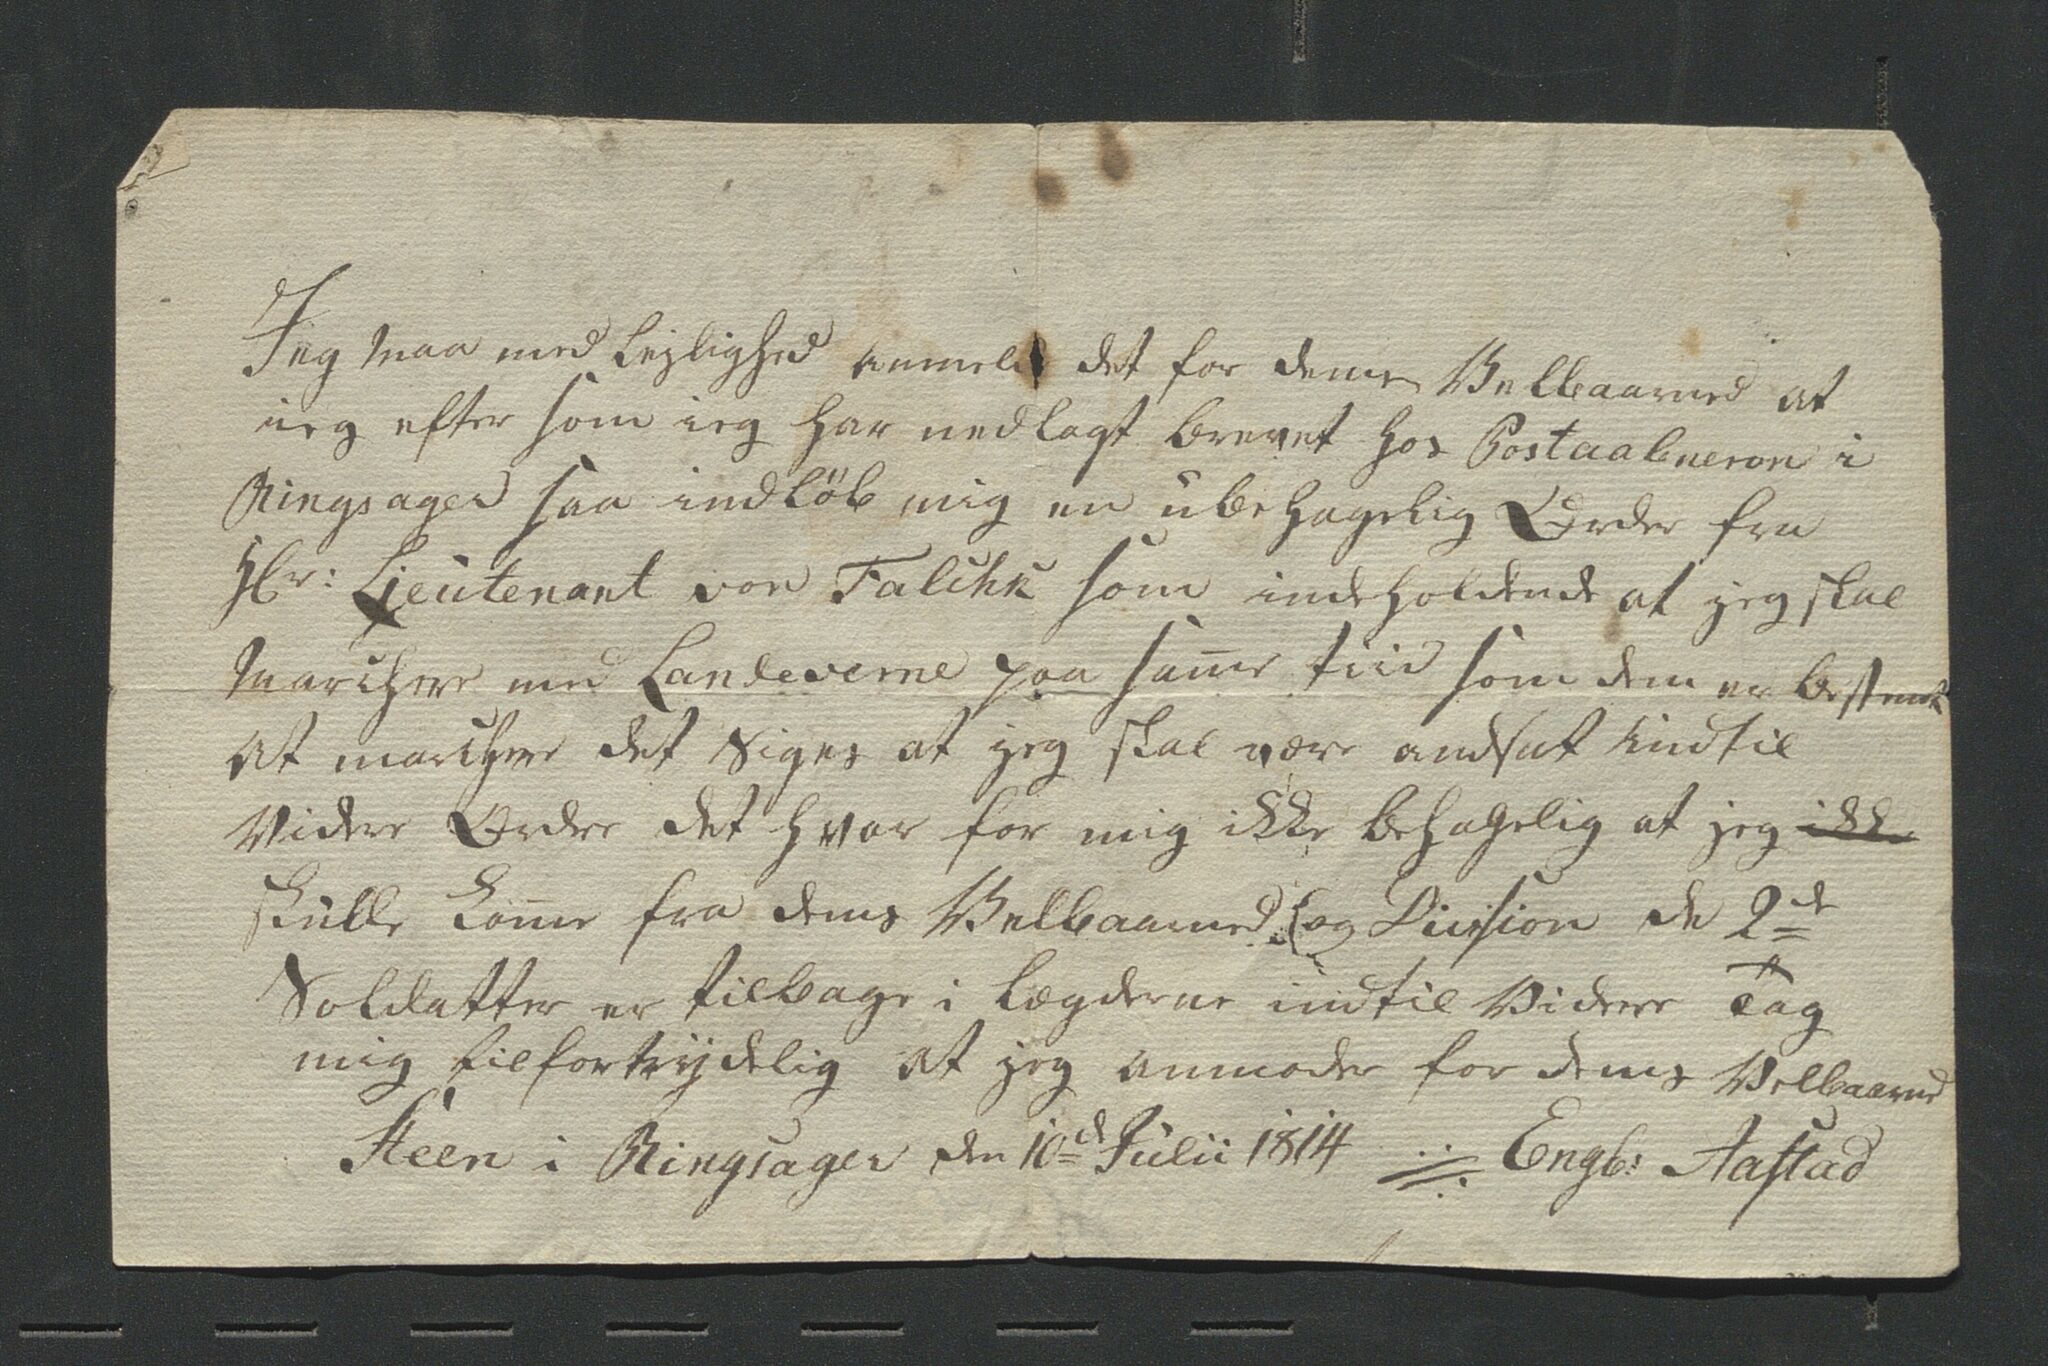 Jeg maa med Leylighed anmelde det for deme Velbaarned at
ieg efter som ieg har nedlagt brevet hos Postaabneren i
Ringsager saa indløb mig en ubehagelig Order fra
Hr: Lieutenant von Falchk som indeholdende at jeg skal
Marchere med Landeverne paa samme tiid som dem er bestemt
at marchere det Siges at jeg skal være andsat indtil
Videre Ordre det hvor for mig ikke behagelig at jeg ikke
skulle komme fra dems Velbaarned og Division de 2de
Soldatter er tilbage i Lægderne indtil Videre Tag
mig tilfortrydelig at jeg anmoder for dems Velbaarned
Steen i Ringsager den 10de Julii 1814 Engb: Aastad